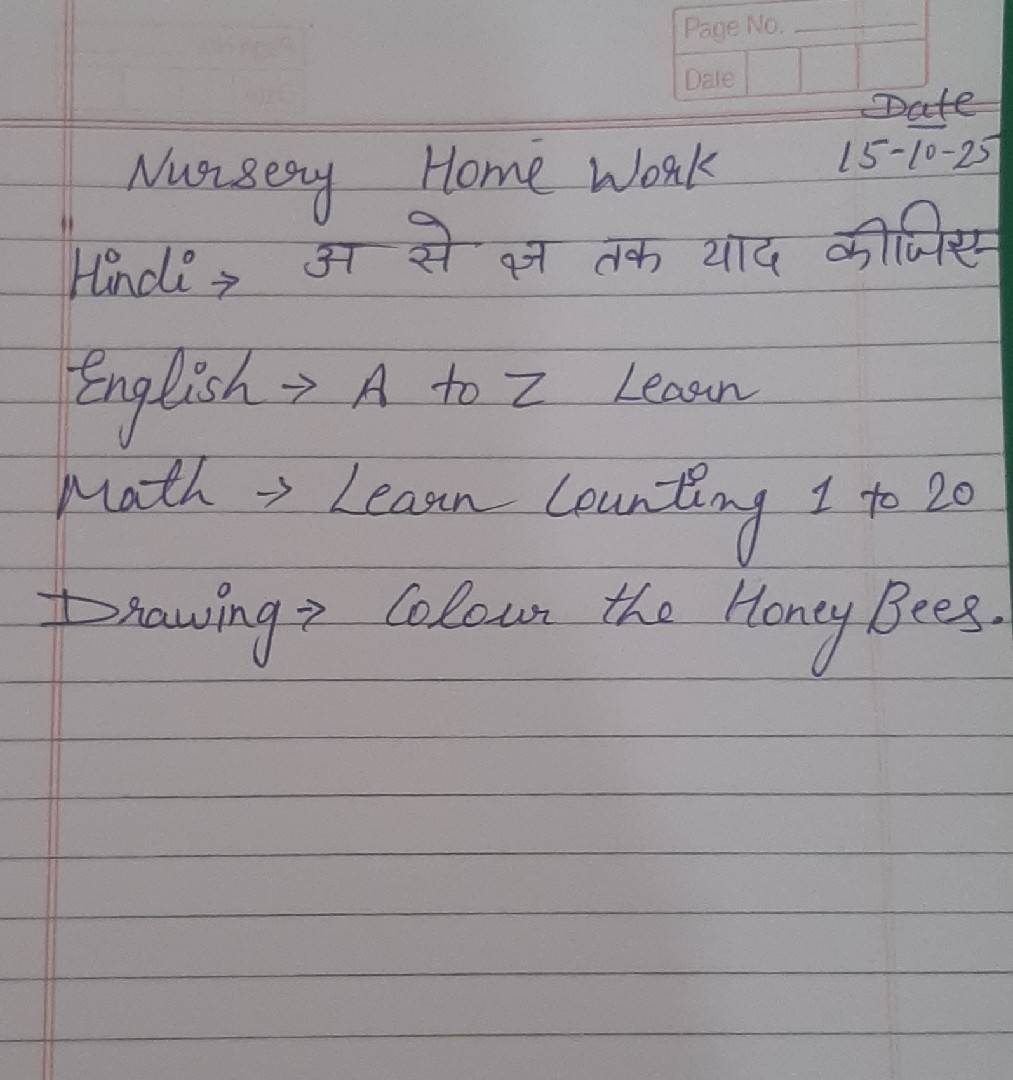 Page No.
Date
Date
Nursery Home Work 15-10-25
Hindi → अ से ज्ञ तक याद कीजिए
English → A to Z Learn
Math → Learn Counting 1 to 20
Drawing → Colour the Honey Bees.